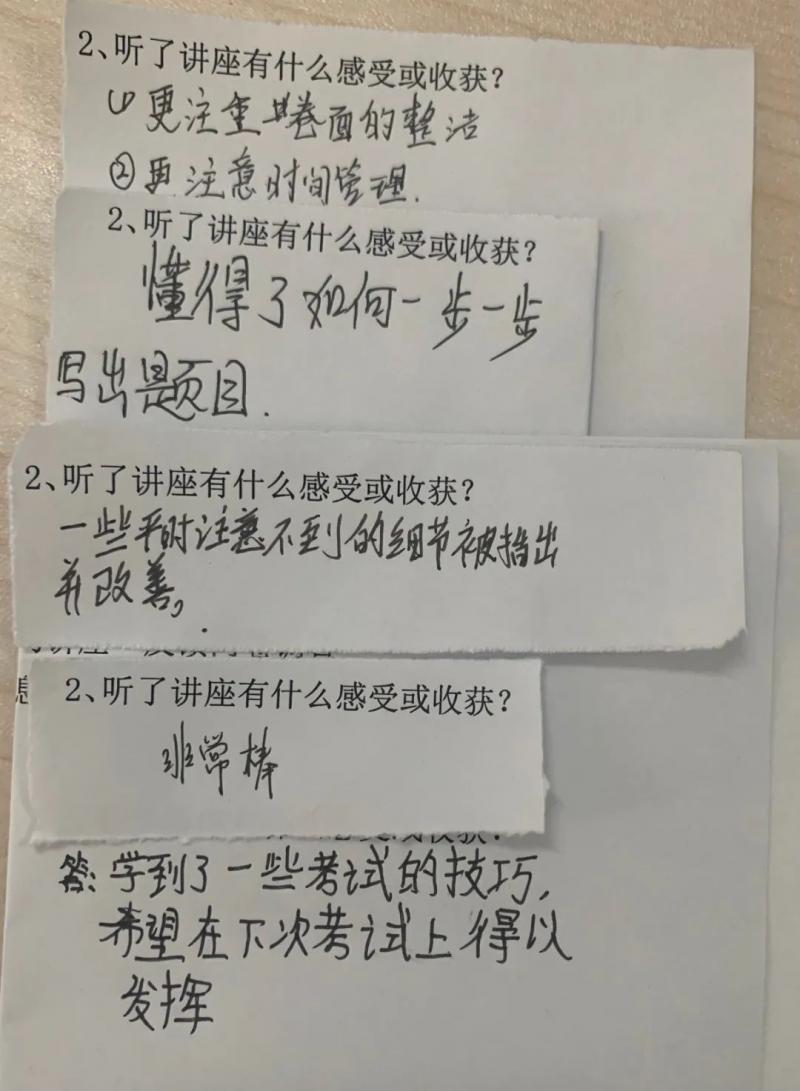 2、听了讲座有什么感受或收获？
(1)更注重卷面的整洁
②更注意时间管理.
2、听了讲座有什么感受或收获？
懂得了如何一步一步
写出题目.
2、听了讲座有什么感受或收获？
一些平时注意不到的细节被指出
并改善。
2、听了讲座有什么感受或收获？
非常棒
答:学到了一些考试的技巧,
希望在下次考试上得以
发挥